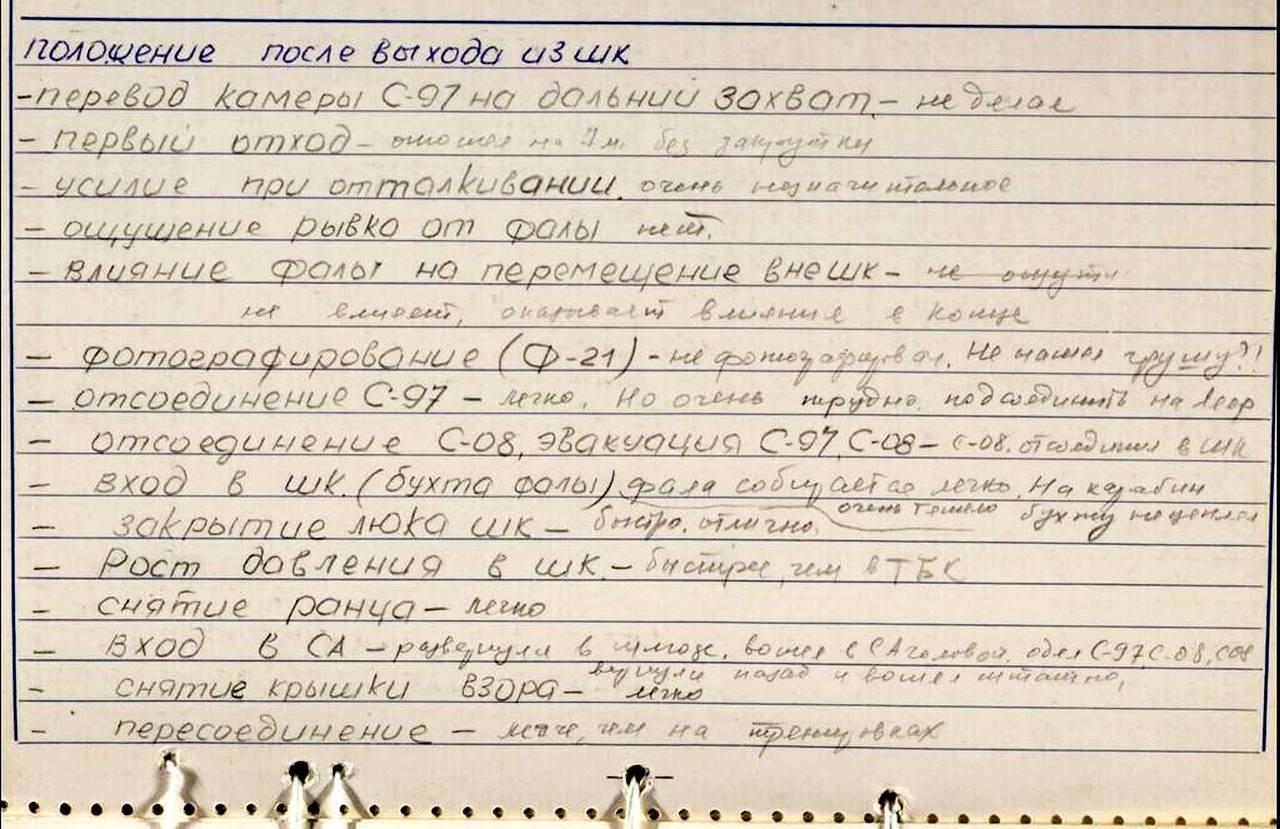 положение после выхода из шк
- перевод камеры С-97 на дальний захват - не делал
- первый отход - отошел на 1 м. без закрутки
- усилие при отталкивании. очень незначительное
- ощущение рывка от фалы нет.
- влияние фалы на перемещение вне шк - не ощути
не влияет, оказывает влияние в конце
- фотографирование (Ф-21) - не фотографировал. Не нашел грушу?!
- отсоединение С-97 - легко. Но очень трудно подсоединить на леер
- отсоединение С-08, эвакуация С-97, С-08 - С-08. отсоединил в ШК
- вход в шк. (бухта фалы) фала собирается легко. На карабин
очень тяжело бухту не цеплял
- закрытие люка шк - быстро. отлично.
- Рост давления в шк. - быстрее, чем в ТБК
- снятие ранца - легко
- вход в СА - развернулся в шлюзе, вошел в СА головой. отдал С-97, С-08, С08
вернулся назад и вошел штатно,
- снятие крышки взора - легко
- пересоединение - легче, чем на тренировках